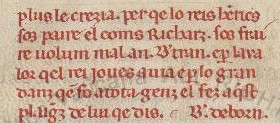 plus le crezia. per qe lo reis henrics
sos paire el coms Richarz. sos frai
re uolum mal an. Btran. e per la va
lor qel rei joues auia e per lo gran
dan qe fo a tota gen el fez aqst
plang de lui qe dis. Bt. deborn.